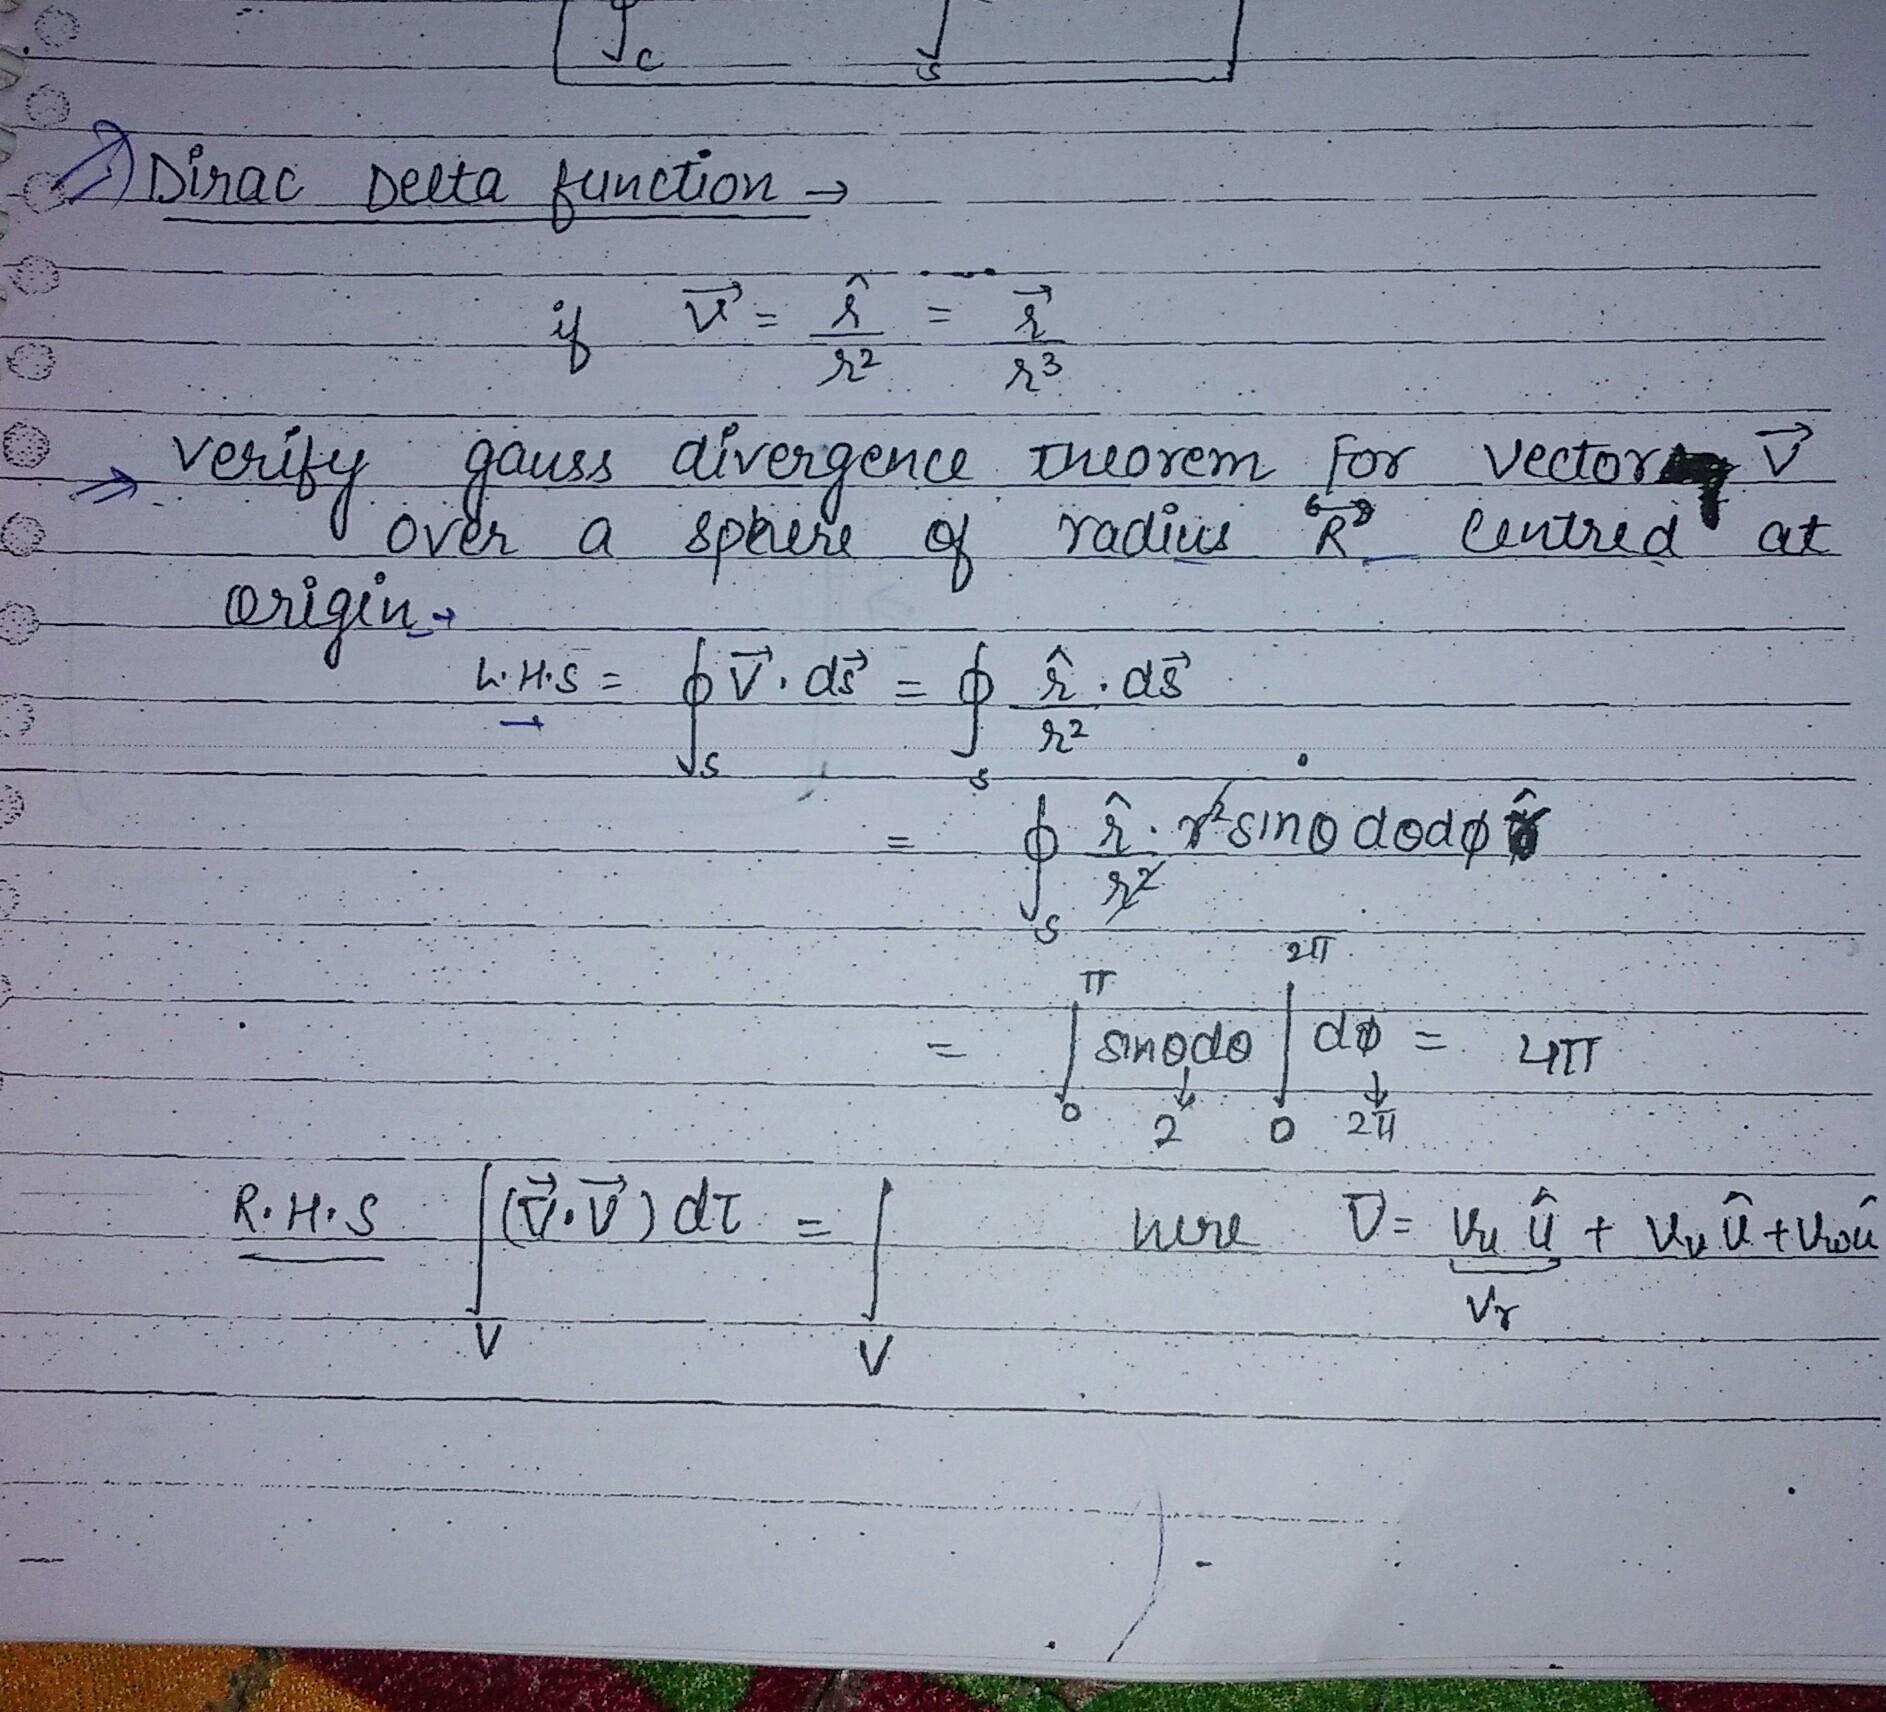 ∮c ∫s
Dirac Delta function →
if V⃗ = r̂/r² = r⃗/r³
⇒ verify gauss divergence theorem for vector V⃗
over a sphere of radius "R" centred at
origin →
L.H.S = ∮s V⃗ . ds⃗ = ∮s r̂/r² . ds⃗
= ∮s r̂/r² . r² sinθ dθ dφ r̂
= ∫₀^π sinθ dθ ∫₀^2π dφ = 4π
↓ 2 ↓ 2π
R.H.S ∫V (∇⃗ . V⃗) dτ = ∫V here V̄ = Vu û + Vv û + Vw û
Vr